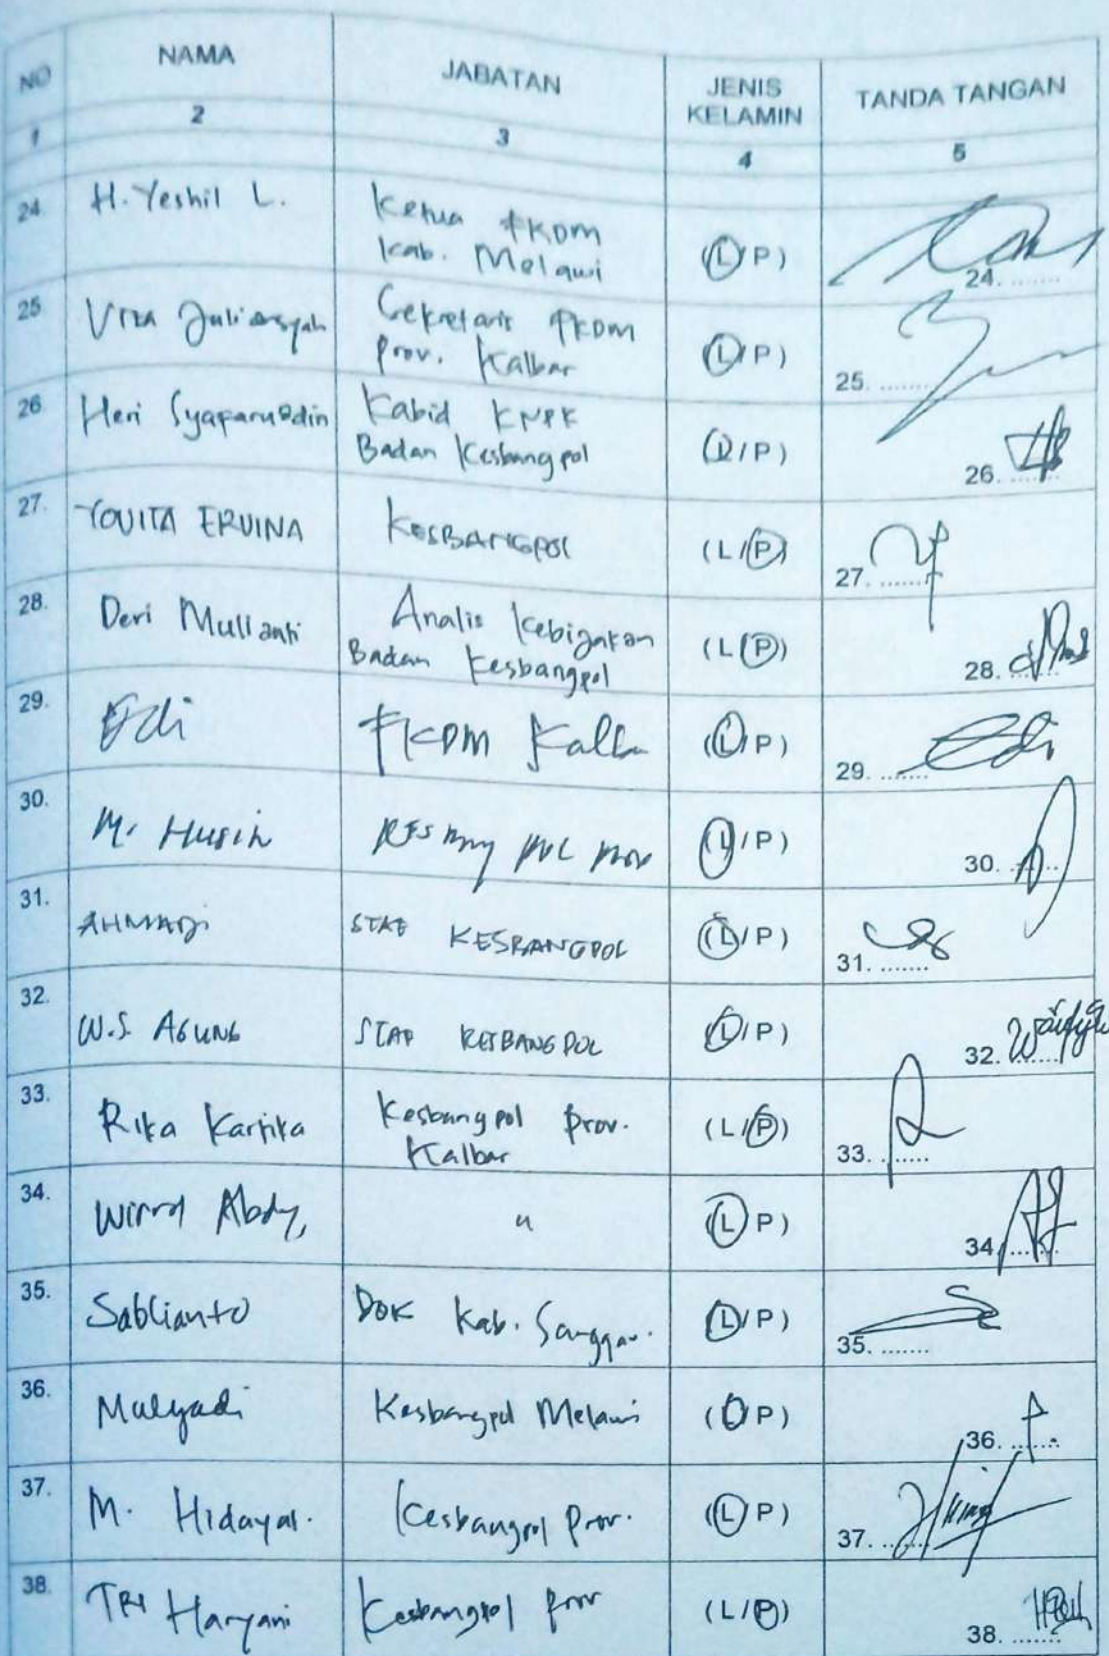 NO NAMA JABATAN JENIS KELAMIN TANDA TANGAN
1 2 3 4 5
24 H. Yeshil L. Ketua FKDM (L/P) 24. ........
Kab. Melawi
25 Juliansyah Sekretaris FKDM (L/P) 25. ........
Prov. Kalbar
26 Heri Syafaruddin Kabid (L/P) 26. ........
Badan Kesbangpol
27. YOUITA ERVINA KESBANGPOL (L/P) 27. ........
28. Deri Mulianti Analis Kebijakan (L/P) 28. ........
Badan Kesbangpol
29. Edi FKDM (L/P) 29. ........
30. M. Husin (L/P) 30. ........
31. AHMADI STAF KESBANGPOL (L/P) 31. ........
32. W.S. AGUNG STAF KESBANGPOL (L/P) 32. ........
33. Rika Kartika Kesbangpol Prov. (L/P) 33. ........
Kalbar
34. Abdy, " (L/P) 34. ........
35. Sablianto Kab. Sanggau. (L/P) 35. ........
36. Mulyadi Kesbangpol Melawi (L/P) 36. ........
37. M. Hidayat. Kesbangpol Prov. (L/P) 37. ........
38. TRI Haryani Kesbangpol Prov (L/P) 38. ........